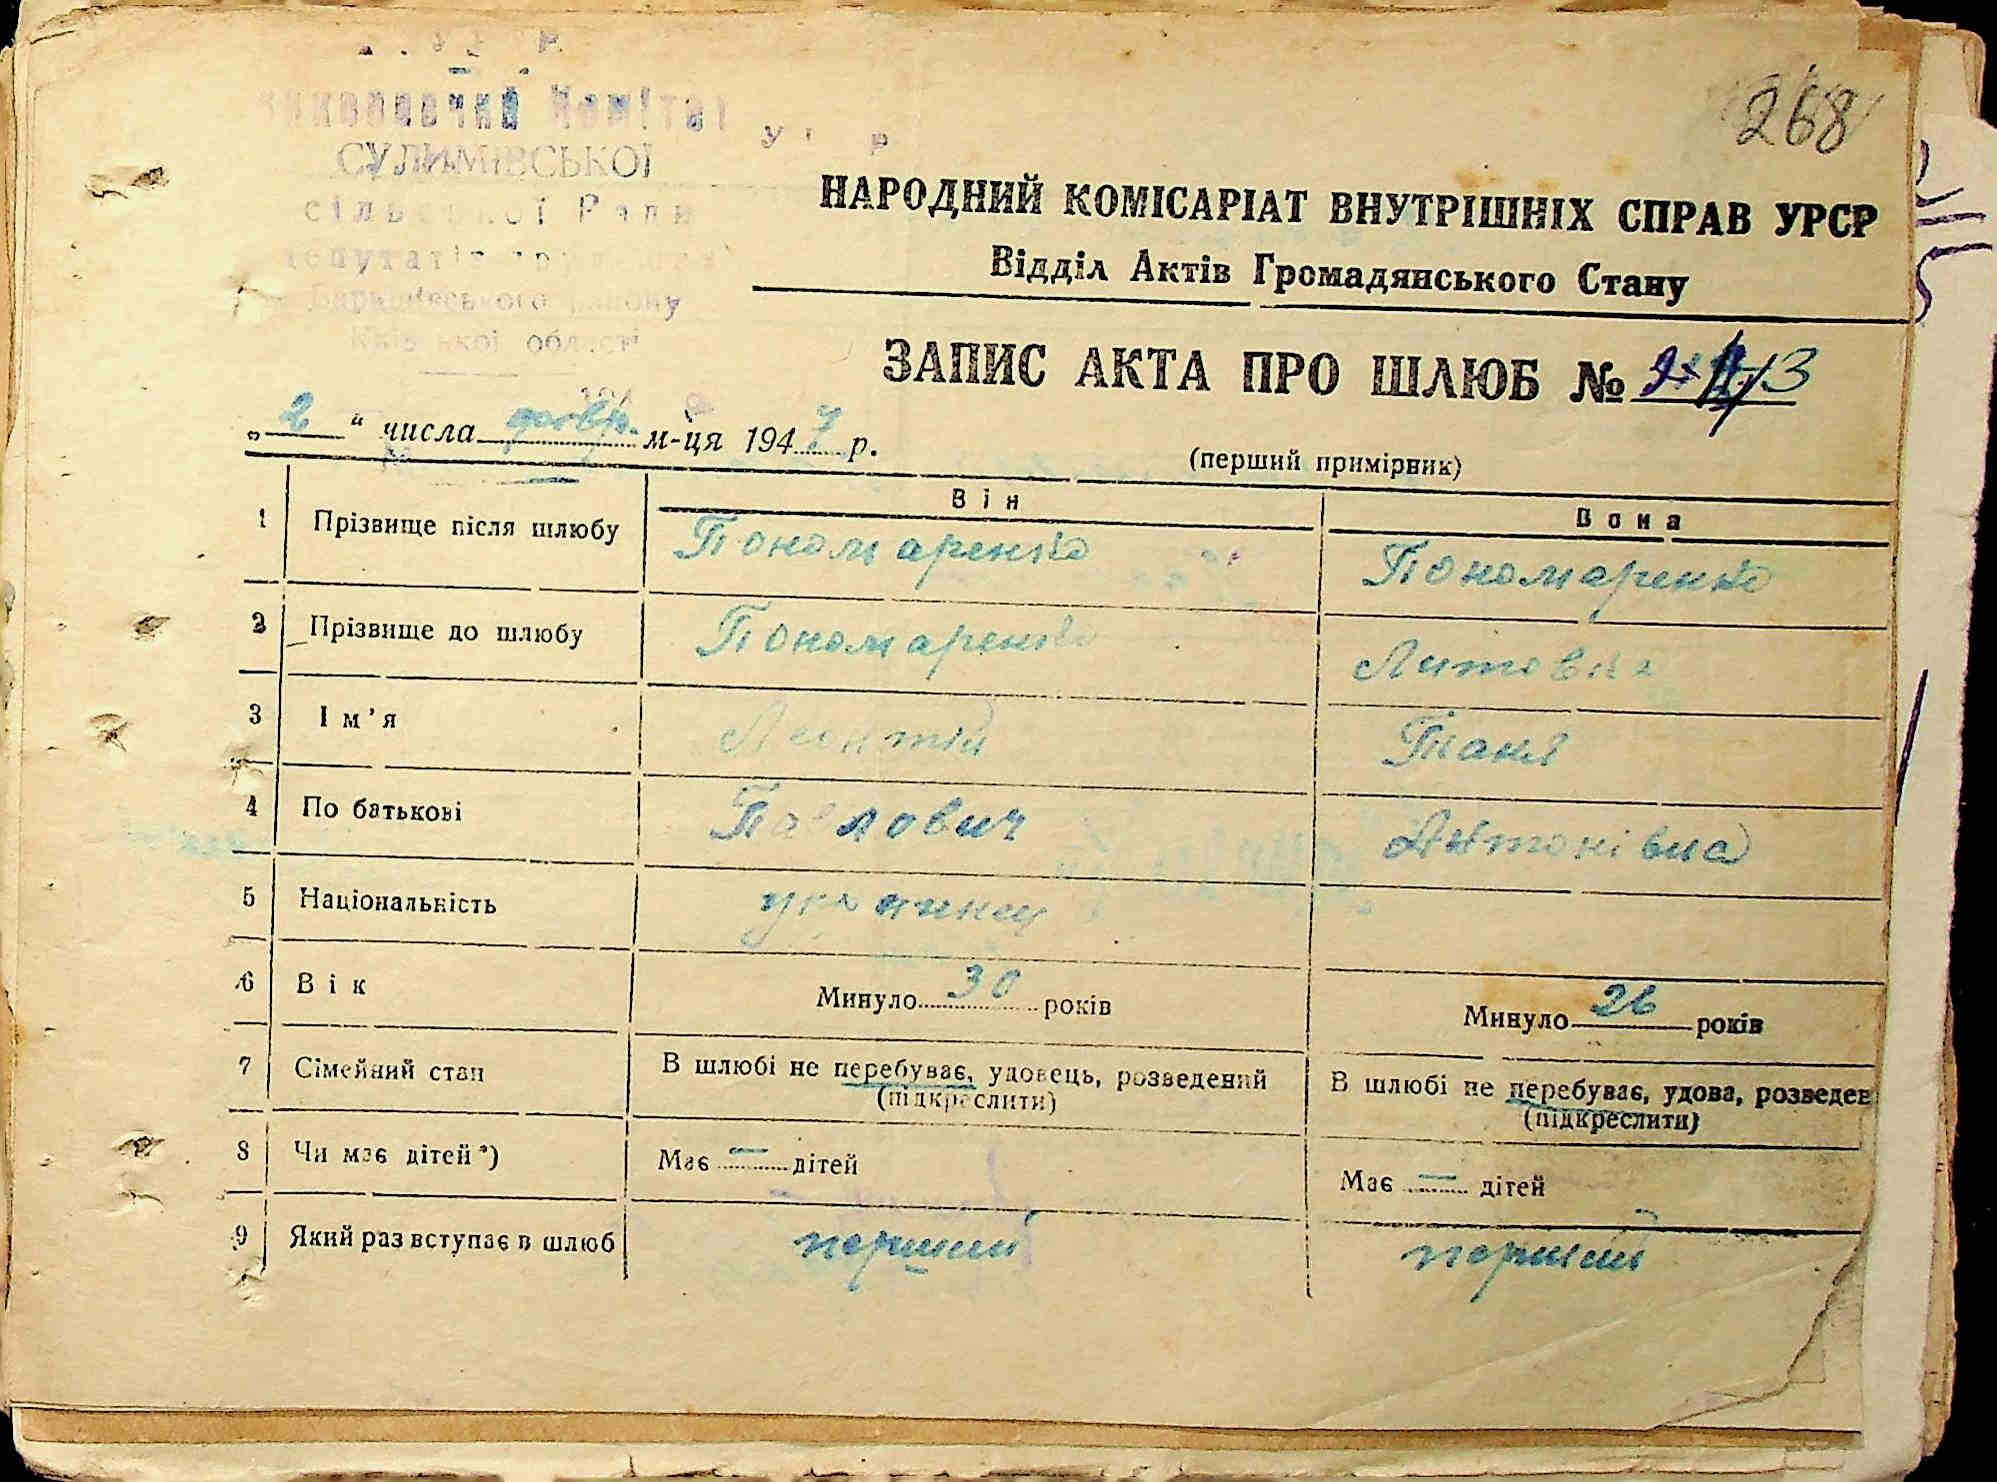 268
Виконавчий Комітет
СУЛИМІВСЬКОЇ
сільської Ради
депутатів трудящих
Баришівського району
Київської області
НАРОДНИЙ КОМІСАРІАТ ВНУТРІШНІХ СПРАВ УРСР
Відділ Актів Громадянського Стану
ЗАПИС АКТА ПРО ШЛЮБ № 13
„2“ числа жовтн. м-ця 1947 р.
(перший примірник)
Він Вона
1 Прізвище після шлюбу Пономаренко Пономаренко
2 Прізвище до шлюбу Пономаренко Литовка
3 Ім'я Леонтій Ганя
4 По батькові Павлович Антонівна
5 Національність українец
6 Вік Минуло 30 років Минуло 26 років
7 Сімейний стан В шлюбі не перебуває, удовець, розведений В шлюбі не перебуває, удова, розведен
(підкреслити) (підкреслити)
8 Чи має дітей*) Має — дітей Має — дітей
9 Який раз вступає в шлюб перший перший